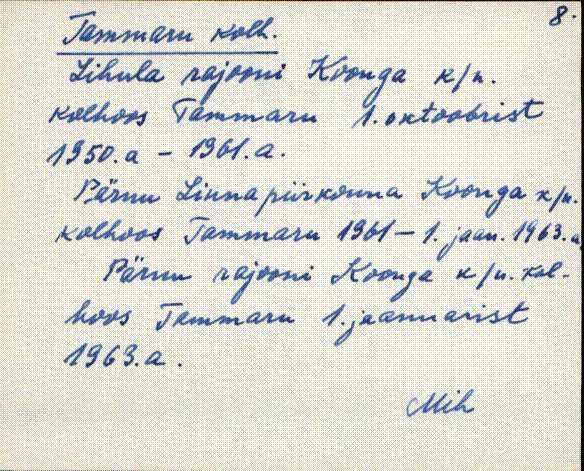 8.
Tammaru kolh.
Lihula rajooni Koonga k/n.
kolhoos Tammaru 1. oktoobrist
1950.a – 1961.a.
Pärnu Linnapiirkonna Koonga k/n.
kolhoos Tammaru 1961 – 1. jaan. 1963.a,
Pärnu rajooni Koonga k/n. kol-
hoos Tammaru 1. jaanuarist
1963.a.
Mih